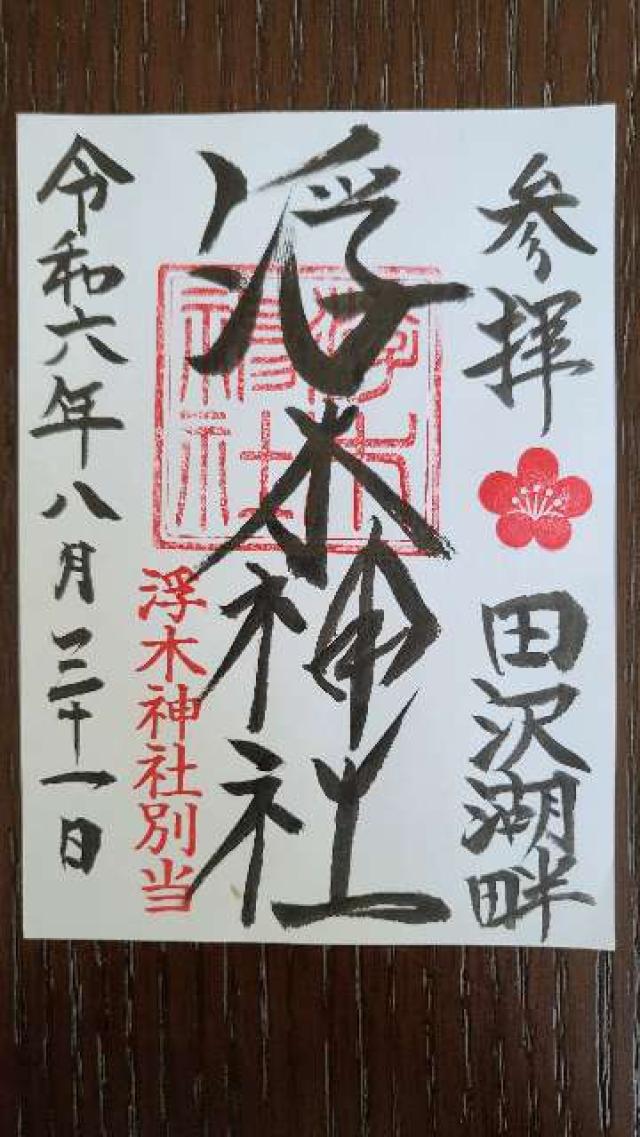 参拝
田沢湖畔
浮木神社
浮木神社
浮木神社別当
令和六年八月三十一日